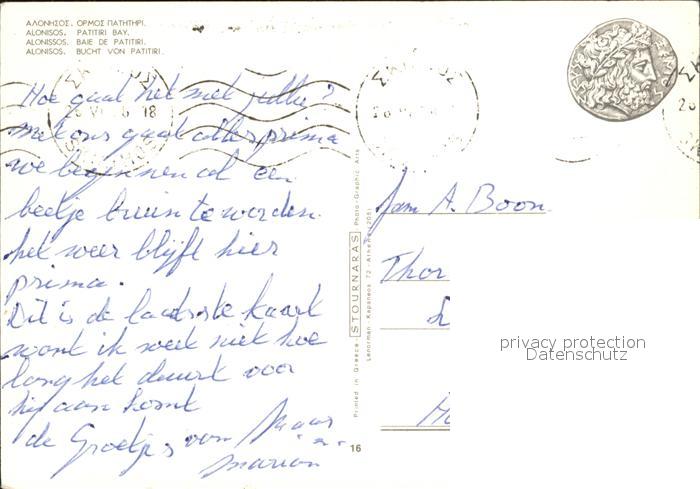 ΑΛΟΝΗΣΟΣ. ΟΡΜΟΣ ΠΑΤΗΤΗΡΙ.
ALONISOS. PATITIRI BAY.
ALONISSOS. BAIE DE PATITIRI.
ALONISOS. BUCHT VON PATITIRI.
Hoe gaat het met jullie?
met ons gaat alles prima
we beginnen al een
beetje bruin te worden.
het weer blijft hier
prima.
Dit is de laatste kaart
want ik weet niet hoe
lang het duurt voor
hij aan komt
de Groetjes van
Marian
Printed in Greece STOURNARAS Photo-Graphic Arts
Lenorman - Kapaneos 72 - Athens (205)
16
Fam A. Boon
Thor
privacy protection
Datenschutz